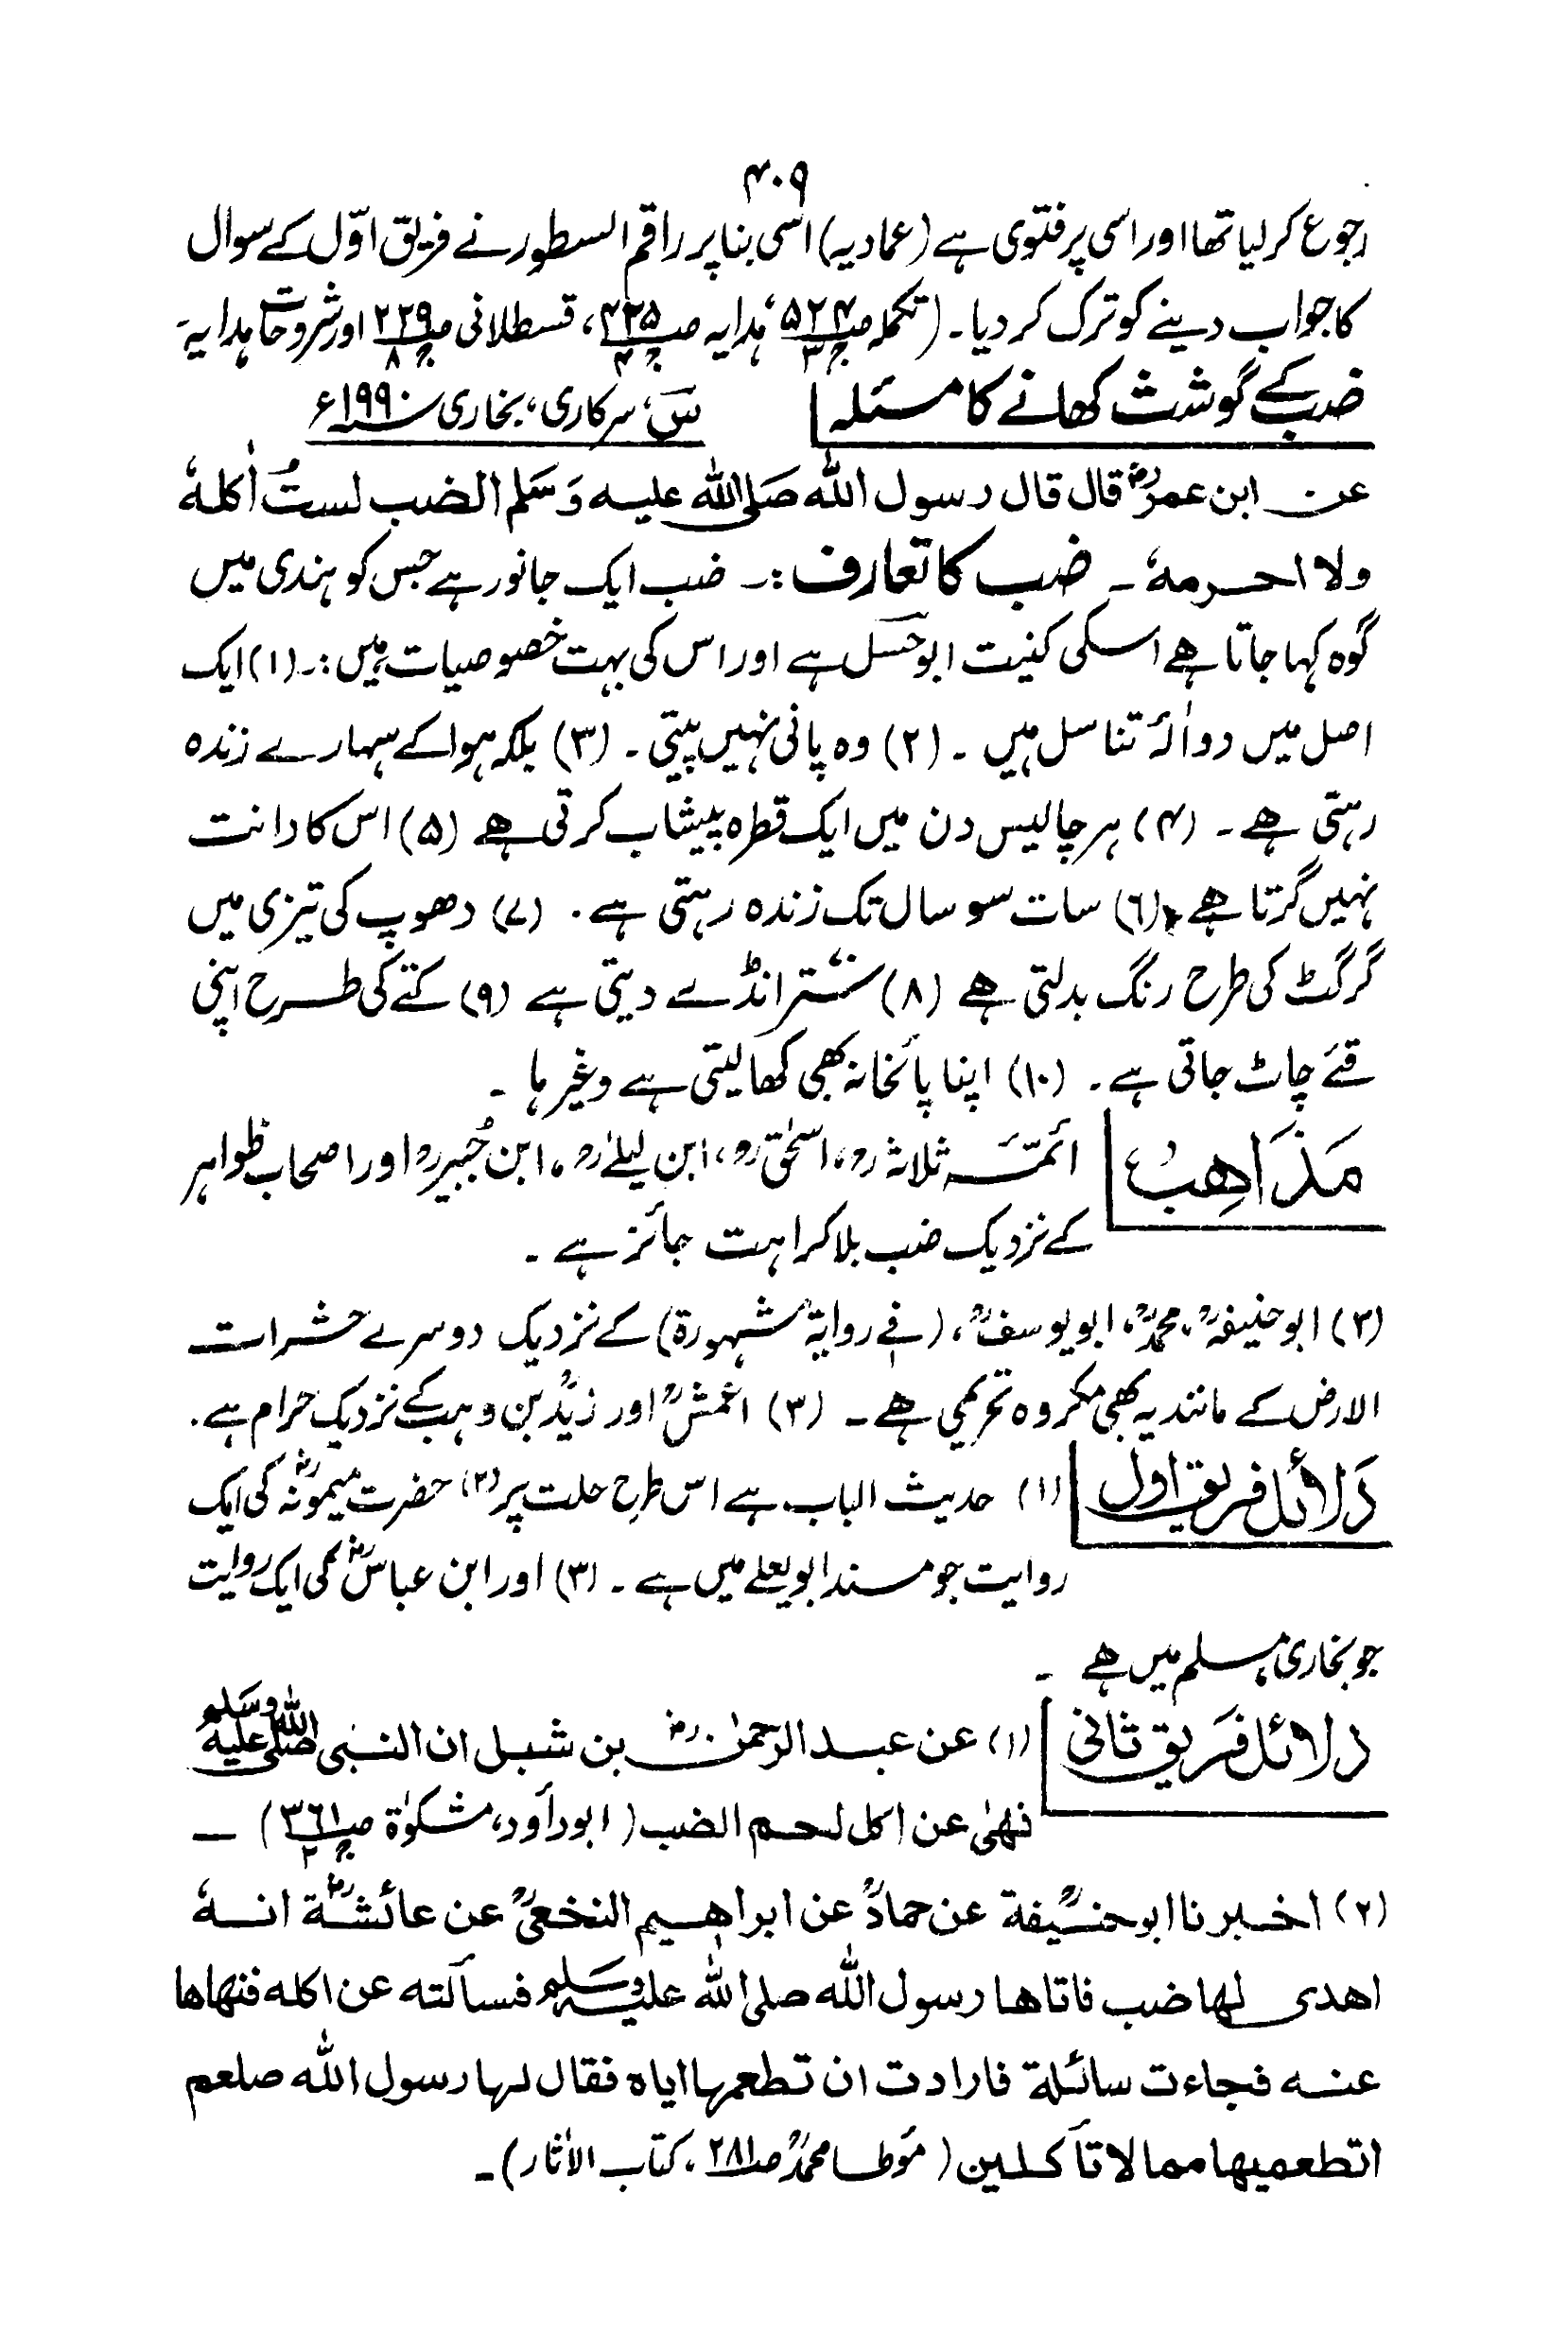 ۴۰۹
رجوع کرلیا تھا اور اسی پر فتوی ہے (عمادیہ) اسی بنا پر راقم السطور نے فریق اوّل کے سوال
کا جواب دینے کو ترک کر دیا۔ (تکملہ صـ۵۲۴ جـ۳، ہدایہ صـ۴۲۵ جـ۴، قسطلانی صـ۲۳۹ جـ۸ اور شروحات ہدایہ
ضب کے گوشت کھانے کا مسئلہ سؔ، سرکاری، بخاری سنہ ۱۹۹۰ء
عن ابن عمرؓ قال قال رسول اللہ صَلی اللہ علیہ وَسَلم الضب لستُ اٰکلہٗ
ولا احرمہٗ ۔ ضب کا تعارف :۔ ضب ایک جانور ہے جس کو ہندی میں
گوہ کہا جاتا ہے اسکی کنیت ابو حسل ہے اور اس کی بہت خصوصیات ہیں :۔ (۱) ایک
اصل میں دو اٰلۂ تناسل ہیں ۔ (۲) وہ پانی نہیں پیتی ۔ (۳) بلکہ ہوا کے سہارے زندہ
رہتی ہے ۔ (۴) ہر چالیس دن میں ایک قطرہ پیشاب کرتی ہے (۵) اس کا دانت
نہیں گرتا ہے، (۶) سات سو سال تک زندہ رہتی ہے ۔ (۷) دھوپ کی تیزی میں
گرگٹ کی طرح رنگ بدلتی ہے (۸) ستّر انڈے دیتی ہے (۹) کتے کی طرح اپنی
قئے چاٹ جاتی ہے ۔ (۱۰) اپنا پائخانہ بھی کھا لیتی ہے وغیر ہا ۔
مَذَاھِبُ ائمّۂ ثلاثہؒ، اسحٰقؒ، ابن لیلےٰؒ، ابن جُبیرؒ اور اصحاب ظواہر
کے نزدیک ضب بلا کراہت جائز ہے ۔
(۲) ابو حنیفہؒ، محمدؒ، ابو یوسفؒ، (فے روایۃ مشہورۃ) کے نزدیک دوسرے حشرات
الارض کے مانند یہ بھی مکروہ تحریمی ہے ۔ (۳) اعمشؒ اور زیدؒ بن وہب کے نزدیک حرام ہے ۔
دَلائل فریق اول (۱) حدیث الباب ہے اس طرح حلت پر (۲) حضرت میمونہؓ کی ایک
روایت جو مسند ابو یعلے میں ہے ۔ (۳) اور ابن عباسؓ کی ایک روایت
جو بخاری، مسلم میں ہے ۔
دلائل فریق ثانی (۱) عن عبد الرحمٰنؓ بن شبل ان النبی صلی اللہ علیہ وسلم
نھیٰ عن اکل لحم الضب (ابو داؤد، مشکوٰۃ صـ۳۶۱ جـ۲) ۔
(۲) اخبرنا ابو حنیفۃؒ عن حمادؒ عن ابراھیم النخعیؒ عن عائشۃؓ انہٗ
اھدی لہا ضب فاتاھا رسول اللہ صلی اللہ علیہ وسلم فسألتہ عن اکلہ فنہاھا
عنہ فجاءت سائلۃ فارادت ان تطعمہا ایاہ فقال لہا رسول اللہ صلعم
اتطعمیہا مما لا تأکلین (مؤطا محمدؒ صـ۲۸۱، کتاب الاٰثار)۔